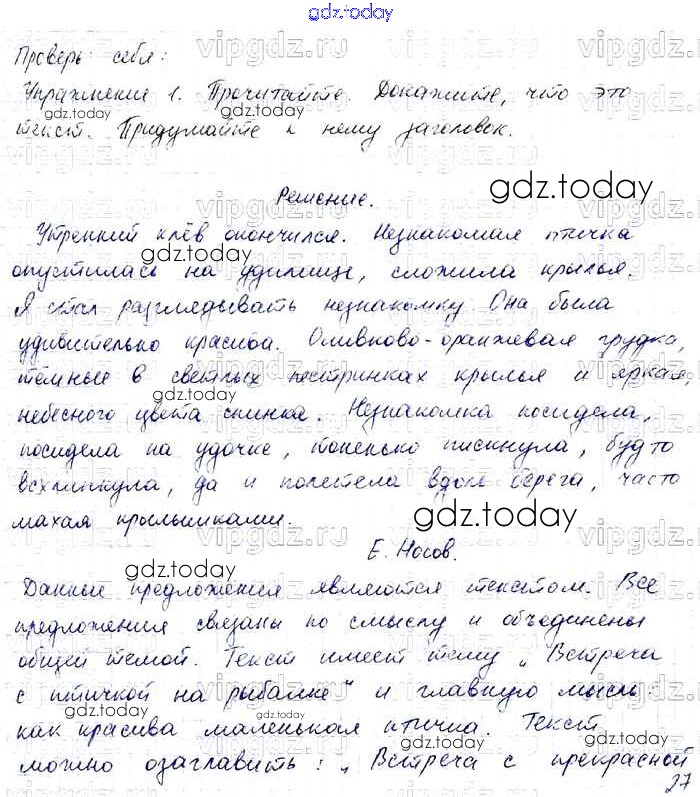 gdz.today
Проверь себя:
Упражнение 1. Прочитайте. Докажите, что это
текст. Придумайте к нему заголовок.
Решение.
Утренний клёв окончился. Незнакомая птичка
опустилась на удилище, сложила крылья.
Я стал разглядывать незнакомку Она была
удивительно красива. Оливково-оранжевая грудка,
тёмные в светлых пестринках крылья и яркая
небесного цвета спинка. Незнакомка посидела,
посидела на удочке, тоненько пискнула, будто
всхлипнула, да и полетела вдоль берега, часто
махая крылышками.
Е. Носов.
Данные предложения являются текстом. Все
предложения связаны по смыслу и объединены
общей темой. Текст имеет тему „Встреча
с птичкой на рыбалке" и главную мысль:
как красива маленькая птичка. Текст
можно озаглавить: „Встреча с прекрасной
27